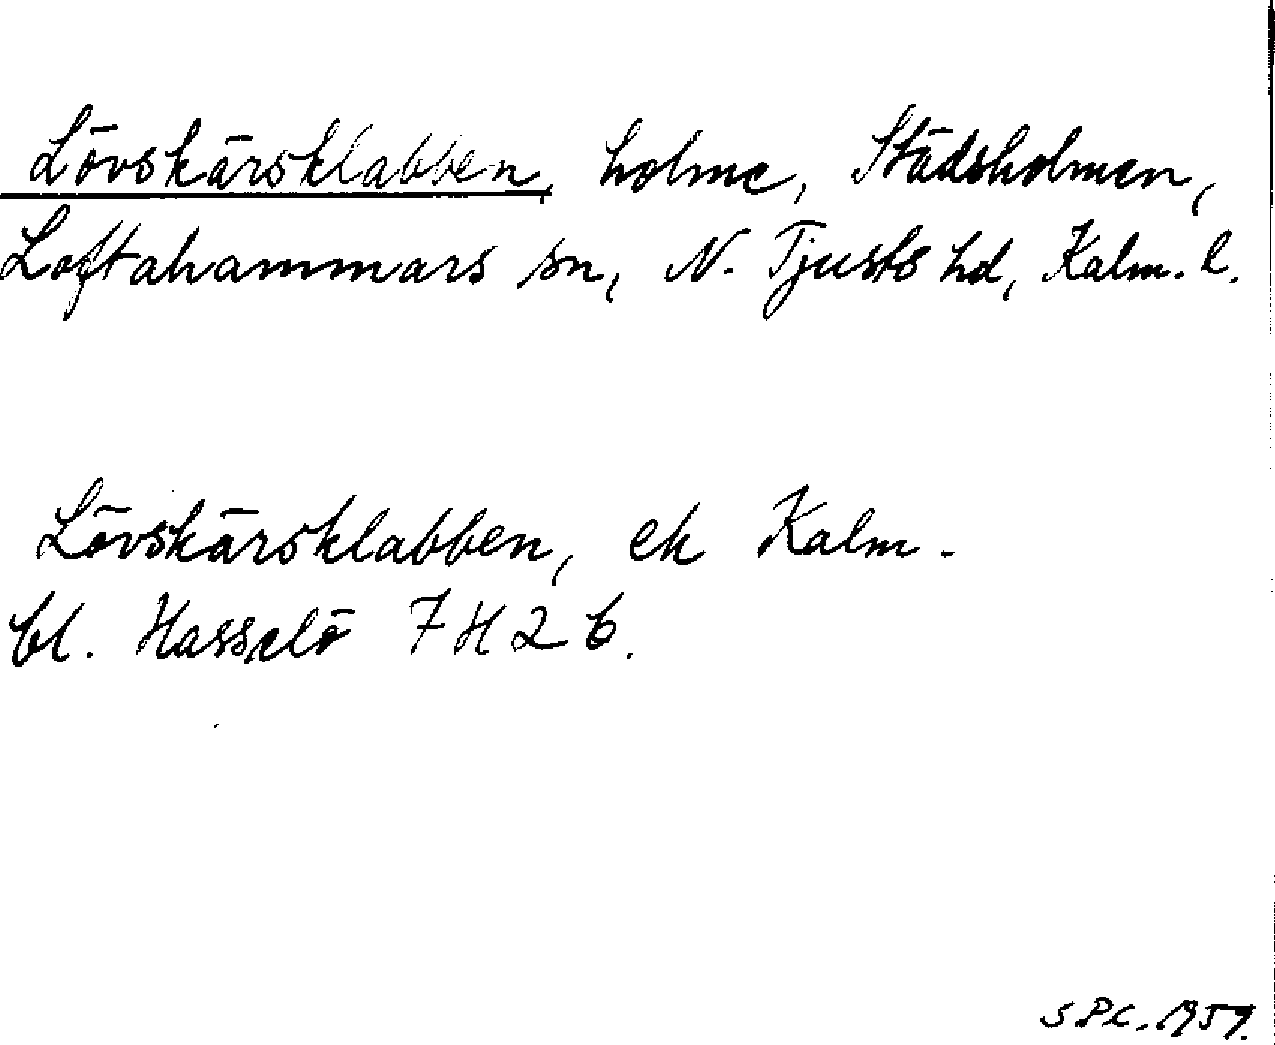 Lövskärsklabben, holme, Städsholmen,
Loftahammars sn, N. Tjusts hd, Kalm. l.
Lövskärsklabben, ek Kalm.
bl. Hasselö 7 H 2 b.
S.P.C. 1959.